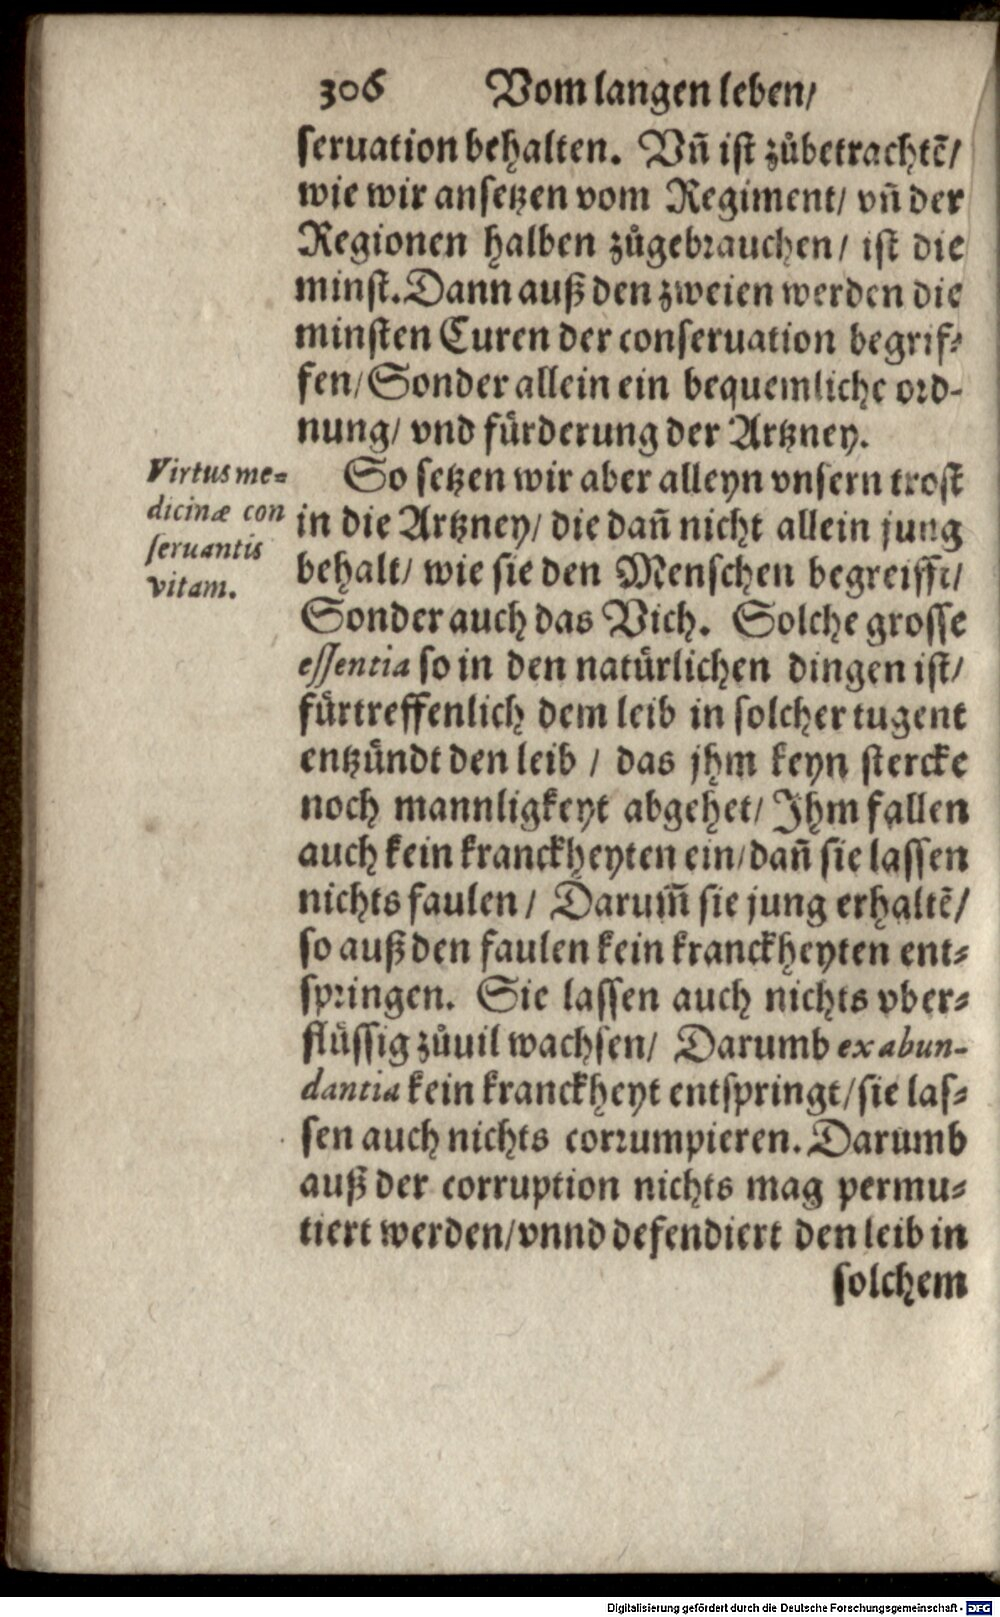 306 Vom langen leben/
seruation behalten. Vn̄ ist zůbetrachtē/
wie wir ansetzen vom Regiment/ vn̄ der
Regionen halben zůgebrauchen/ ist die
minst. Dann auß den zweien werden die
minsten Curen der conseruation begrif-
fen/ Sonder allein ein bequemliche ord-
nung/ vnd fürderung der Artzney.
Virtus me-
dicinæ con
seruantis
vitam.
So setzen wir aber alleyn vnsern trost
in die Artzney/ die dañ nicht allein jung
behalt/ wie sie den Menschen begreifft/
Sonder auch das Vich. Solche grosse
essentia so in den natürlichen dingen ist/
fürtreffenlich dem leib in solcher tugent
entzündt den leib / das jhm keyn stercke
noch mannligkeyt abgehet/ Ihm fallen
auch kein kranckheyten ein/ dañ sie lassen
nichts faulen / Darum̄ sie jung erhaltē/
so auß den faulen kein kranckheyten ent-
springen. Sie lassen auch nichts vber-
flüssig zůuil wachsen/ Darumb ex abun-
dantia kein kranckheyt entspringt/ sie las-
sen auch nichts corrumpieren. Darumb
auß der corruption nichts mag permu-
tiert werden/ vnnd defendiert den leib in
solchem
Digitalisierung gefördert durch die Deutsche Forschungsgemeinschaft - DFG